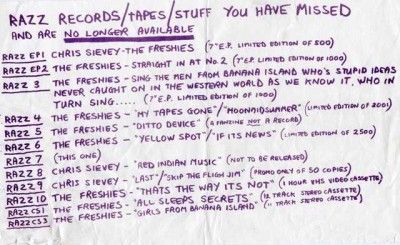 RAZZ RECORDS/TAPES/STUFF YOU HAVE MISSED
AND ARE NO LONGER AVAILABLE
RAZZ EP1 CHRIS SIEVEY-THE FRESHIES (7"E.P. LIMITED EDITION OF 500)
RAZZ EP2 THE FRESHIES-STRAIGHT IN AT NO.2 (7"E.P. LIMITED EDITION OF 1000)
RAZZ 3 THE FRESHIES-SING THE MEN FROM BANANA ISLAND WHO'S STUPID IDEAS
NEVER CAUGHT ON IN THE WESTERN WORLD AS WE KNOW IT, WHO IN
TURN SING..... (7" E.P. LIMITED EDITION OF 1000)
RAZZ 4 THE FRESHIES-"MY TAPES GONE"/"MOONMIDSUMMER" (LIMITED EDITION OF 2001)
RAZZ 5 THE FRESHIES-"DITTO DEVICE" (A FANZINE NOT A RECORD)
RAZZ 6 THE FRESHIES-"YELLOW SPOT"/"IF ITS NEWS" (LIMITED EDITION OF 2500)
RAZZ 7 (THIS ONE)
RAZZ 8 CHRIS SIEVEY-"RED INDIAN MUSIC" (NOT TO BE RELEASED)
RAZZ 9 CHRIS SIEVEY-"LAST"/"SKIP THE FLIGH JIM" (PROMO ONLY OF 50 COPIES)
RAZZ 10 THE FRESHIES-"THATS THE WAY ITS NOT" (1 HOUR VHS VIDEO CASSETTE)
RAZZ CS1 THE FRESHIES-"ALL SLEEPS SECRETS" (12 TRACK STEREO CASSETTE)
RAZZ CS3 THE FRESHIES-"GIRLS FROM BANANA ISLAND" (11 TRACK STEREO CASSETTE)